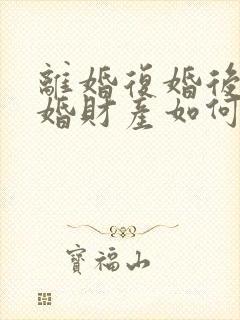 離婚復婚後
婚財產如何
寶福山